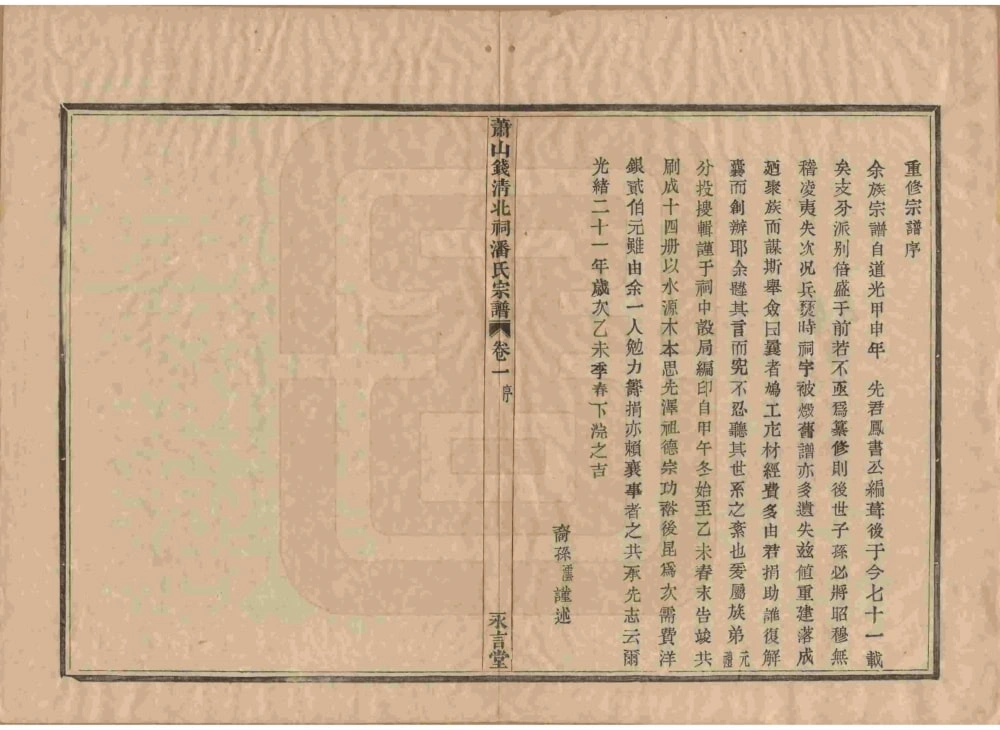 重修宗譜序
余族宗譜自道光甲申年　先君鳳書公編葺後于今七十一載
矣支分派別倍盛于前若不亟為纂修則後世子孫必將昭穆無
稽凌夷失次況兵燹時祠宇被燬舊譜亦多遺失茲値重建落成
廼聚族而謀斯舉僉曰曩者鳩工庀材經費多由君捐助誰復解
囊而創辦耶余韙其言而究不忍聽其世系之紊也爰屬族弟元
分投搜輯謹于祠中設局編印自甲午冬始至乙未春末告竣共
刷成十四册以水源木本思先澤祖德宗功裕後昆為次需費洋
銀貳伯元雖由余一人勉力籌捐亦賴襄事者之共承先志云爾
光緒二十一年歲次乙未季春下浣之吉
裔孫 謹述
蕭山錢清北祠潘氏宗譜 卷一 序
承言堂